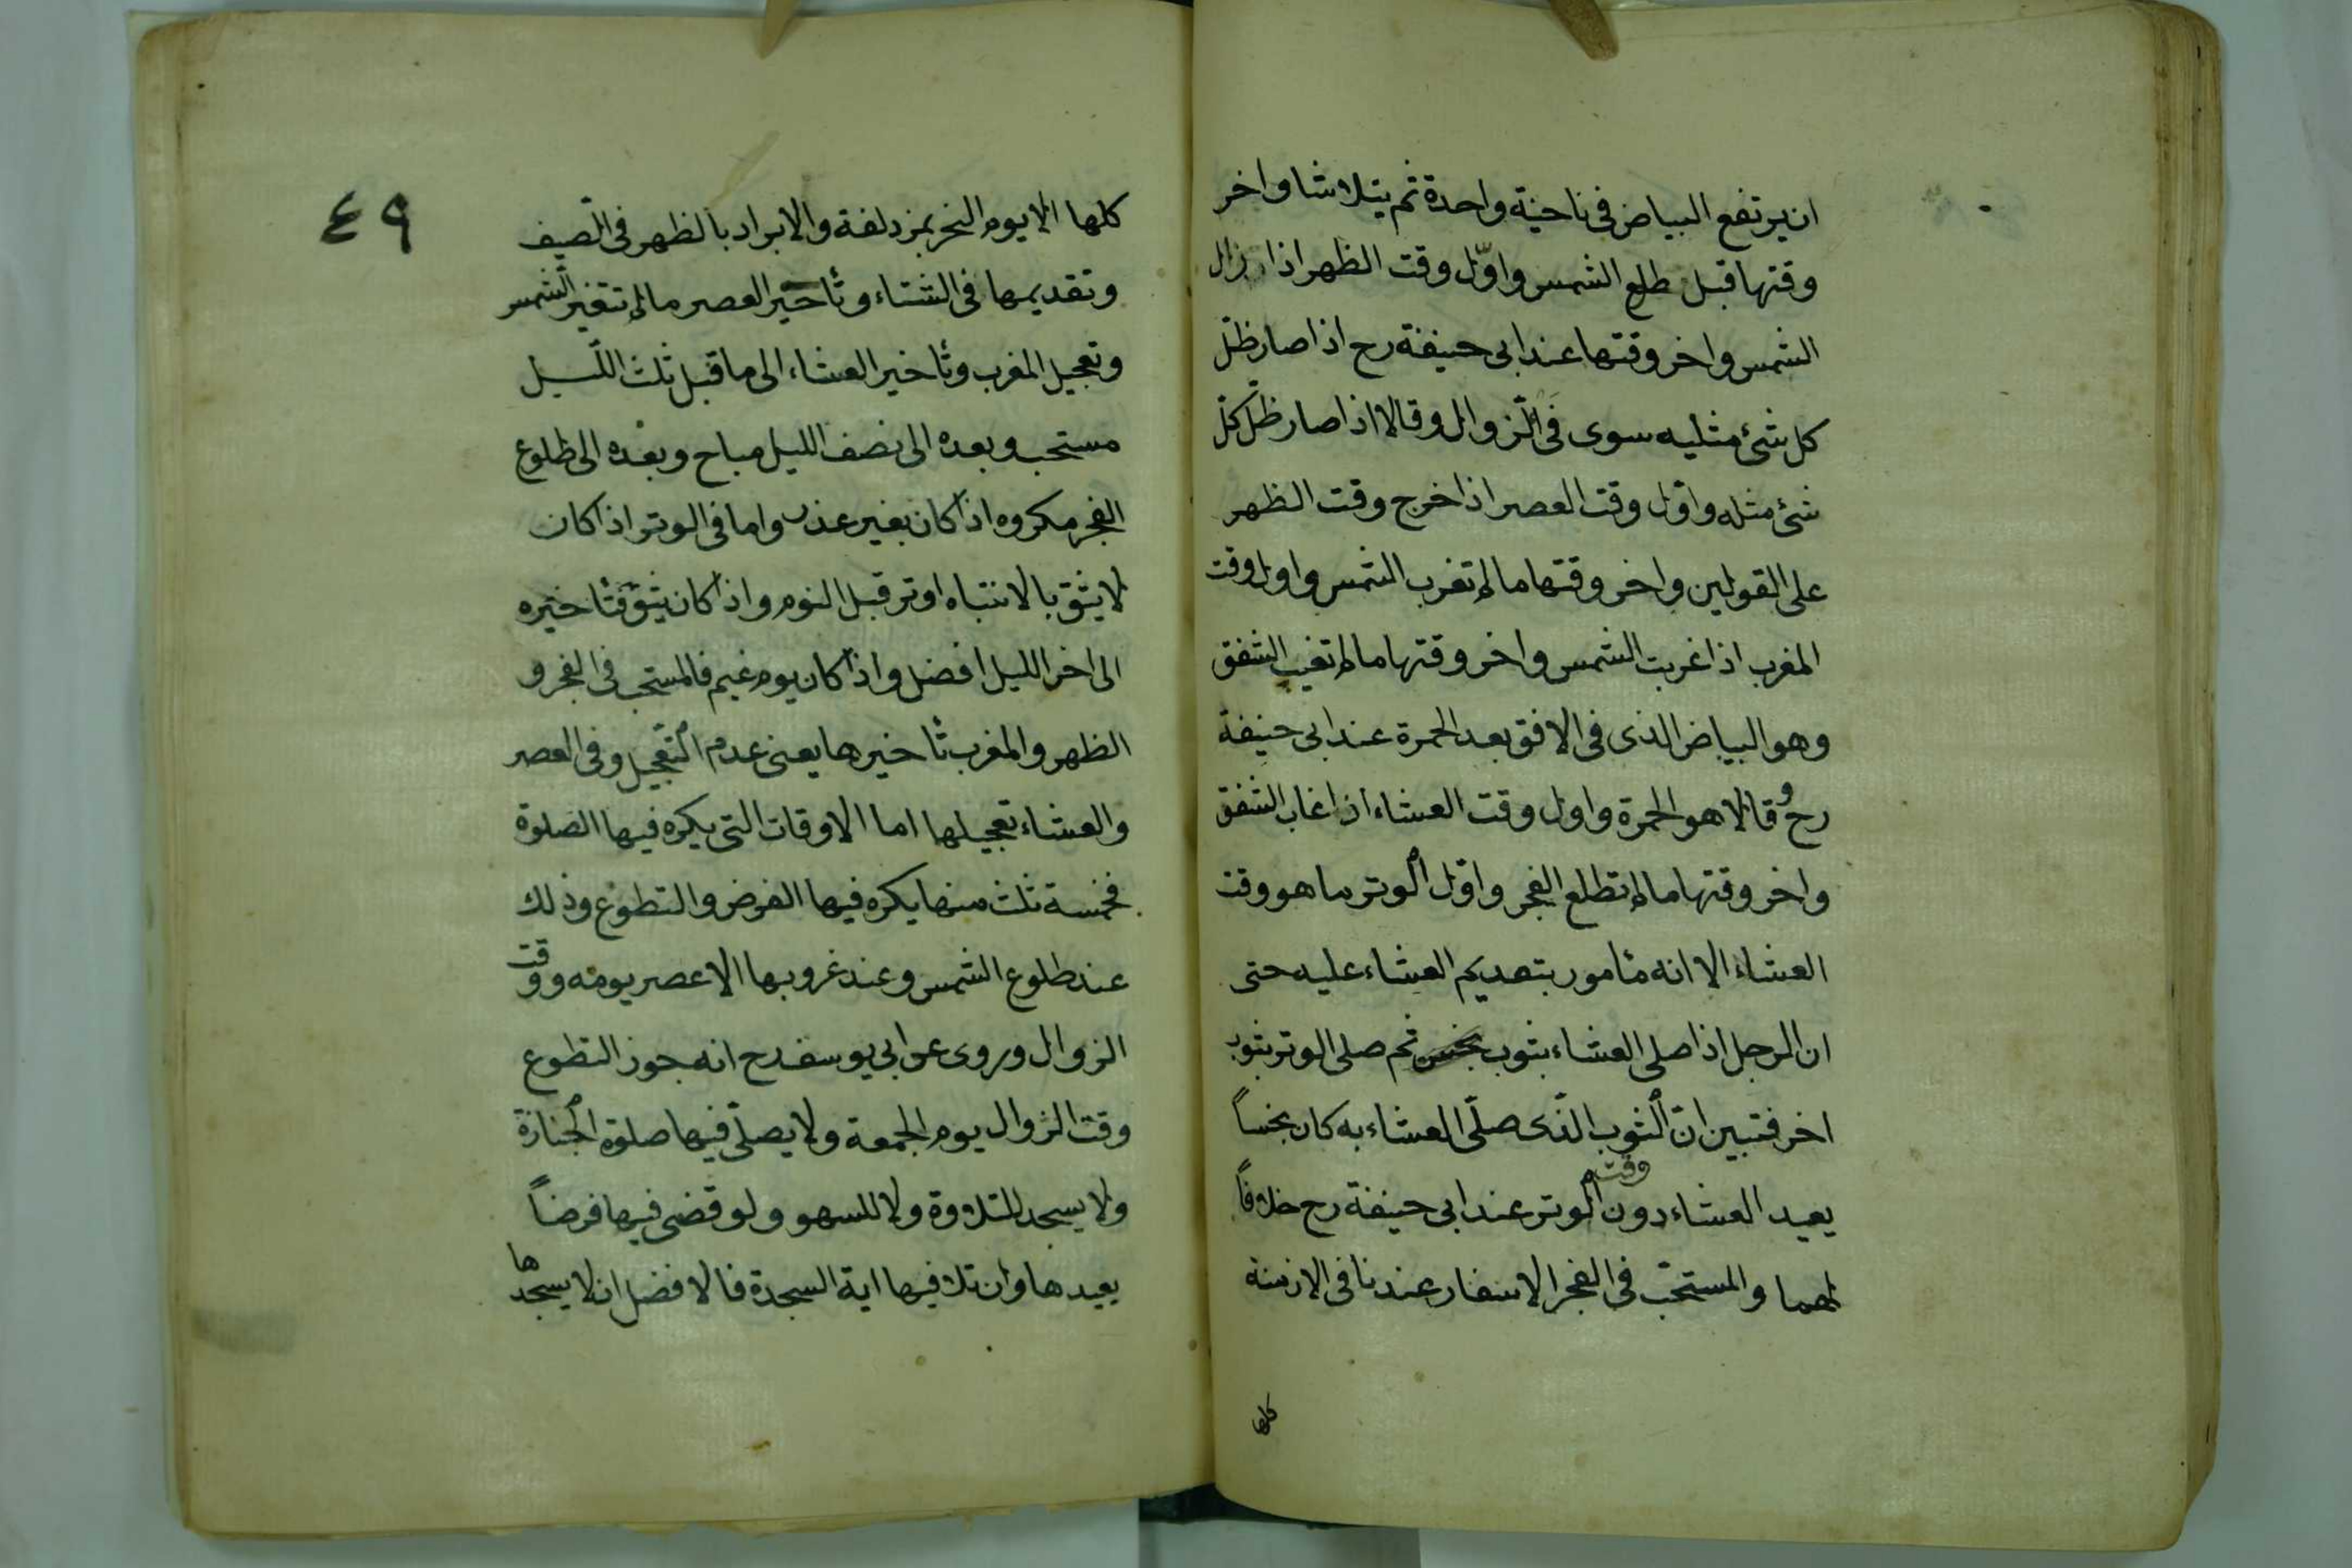 ان يرتفع البياض في ناحية واحدة ثم يتلاشا واخر
وقتها قبل طلع الشمس واوّل وقت الظهر اذا زال
الشمس واخر وقتها عند ابى حنيفة رح اذا صار ظلّ
كل شئ مثليه سوى فى الزوال وقالا اذا صار ظلّ كلّ
شئ مثله واوّل وقت العصر اذا خرج وقت الظهر
على القولين واخر وقتها مالم تغرب الشمس واول وقت
المغرب اذا غربت الشمس واخر وقتها مالم تغيب الشفق
وهو البياض الذى فى الافق بعد الحمرة عند ابى حنيفة
رح وقالا هو الحمرة واول وقت العشاء اذا غاب الشفق
واخر وقتها مالم تطلع الفجر واوّل الوتر ما هو وقت
العشاء الا انه مأمور بتقديم العشاء عليه حتى
ان الرجل اذا صلى العشاء بثوب نجس ثم صلى الوتر بثوب
اخر فتبين انّ الثوب الذّى صلّى العشاء به كان نجساً
وقت
يعيد العشاء دون الوتر عند ابى حنيفة رح خلافاً
لهما والمستحبّ فى الفجر الاسفار عندنا فى الازمنة
كلها
٤٩
كلها الا يوم النحر بمزدلفة والابراد بالظهر فى الصّيف
وتقديمها فى الشتاء وتأخير العصر مالم تتغير الشّمس
وتعجيل المغرب وتأخير العشاء الى ما قبل ثلث اللّيل
مستحب وبعده الى نصف الليل مباح وبعده الى طلوع
الفجر مكروه اذا كان بغير عذر واما فى الوتر اذا كان
لا يثق بالانتباه اوتر قبل النوم واذا كان يثق فتأخيره
الى اخر الليل افضل واذا كان يوم غيم فالمستحب فى الفجر و
الظهر والمغرب تأخيرها يعنى عدم التّعجيل وفى العصر
والعشاء تعجيلها اما الاوقات التى يكره فيها الصلوة
فخمسة ثلث منها يكره فيها الفرض والتطوع وذلك
عند طلوع الشمس وعند غروبها الا عصر يومه ووقت
الزوال وروى عن ابى يوسف رح انه جوز التطوع
وقت الزوال يوم الجمعة ولا يصلّى فيها صلوة الجنازة
ولا يسجد للتلاوة ولا للسهو ولو قضى فيها فرضاً
يعيدها وان تلا فيها اية السجدة فالافضل ان لا يسجدها